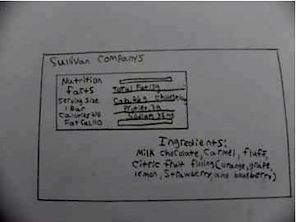 Sullivan Companys
Nutrition
facts
Serving Size
1 Bar
Calories
Fat Cal 110
Total Fat 13g
Protein 3g
Sodium 35mg
Ingredients:
Milk chocolate, Carmel, fluff,
Citric fruit filling (orange, grape,
lemon, Strawberry, and blueberry)